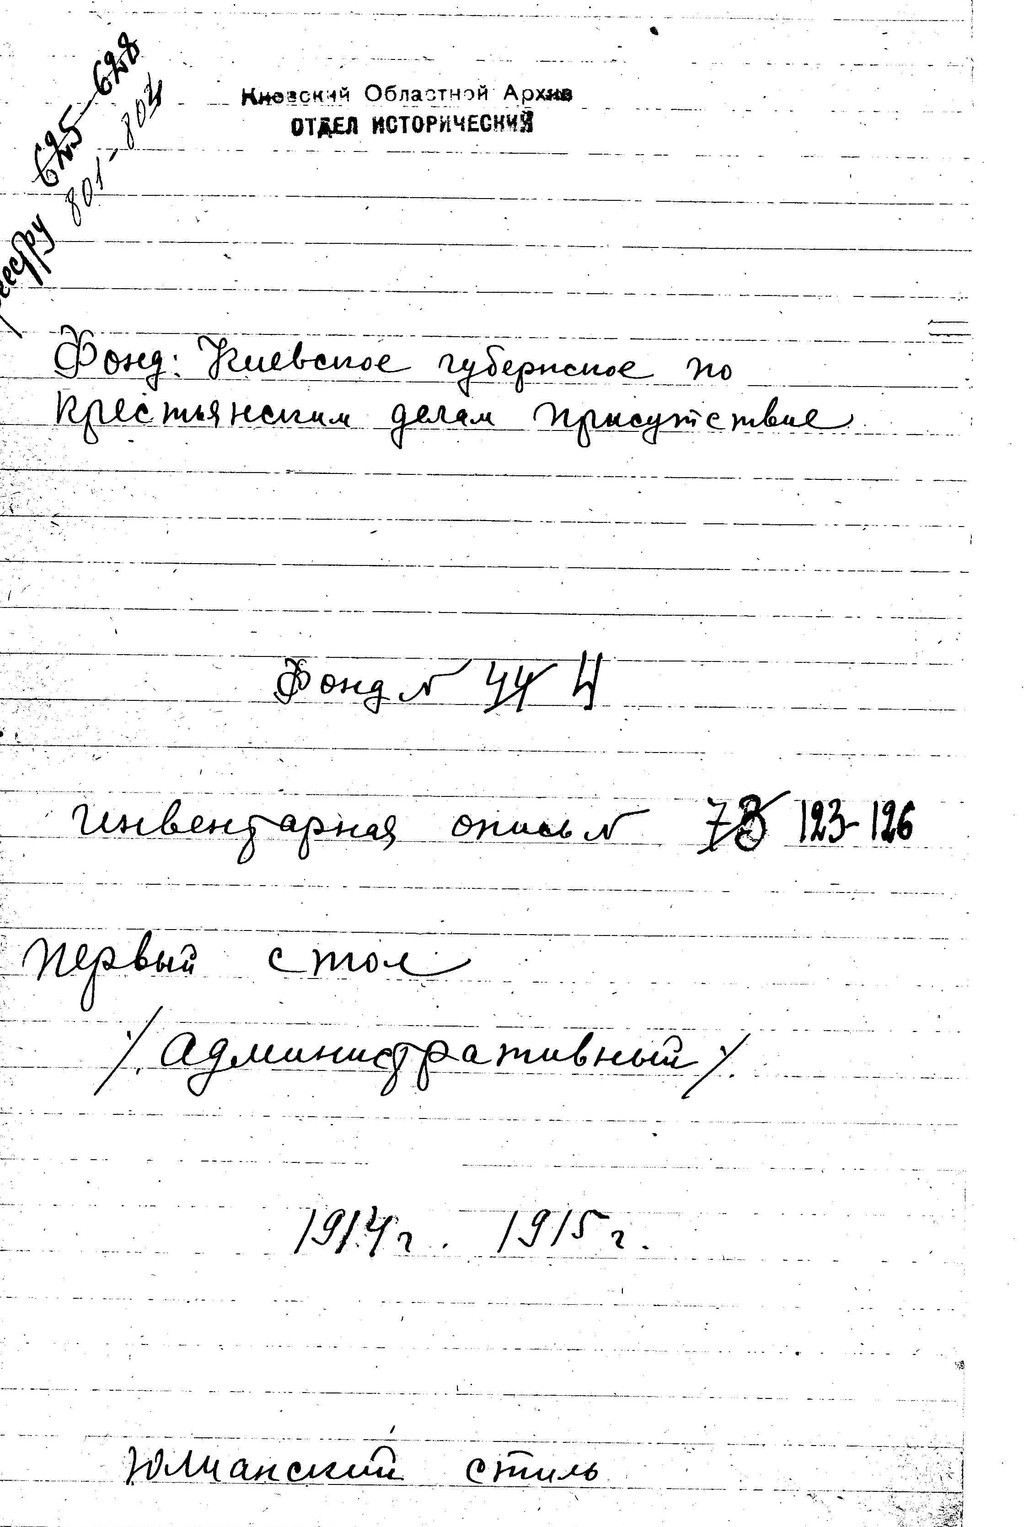 625-628
801-804
Киевский Областной Архив
ОТДЕЛ ИСТОРИЧЕСКИЙ
Фонд: Киевское губернское по
крестьянским делам присутствие
Фонд № 44 4
Инвентарная опись № 78 123-126
Первый стол
/. Административный /.
1914 г. 1915 г.
Юлианский стиль